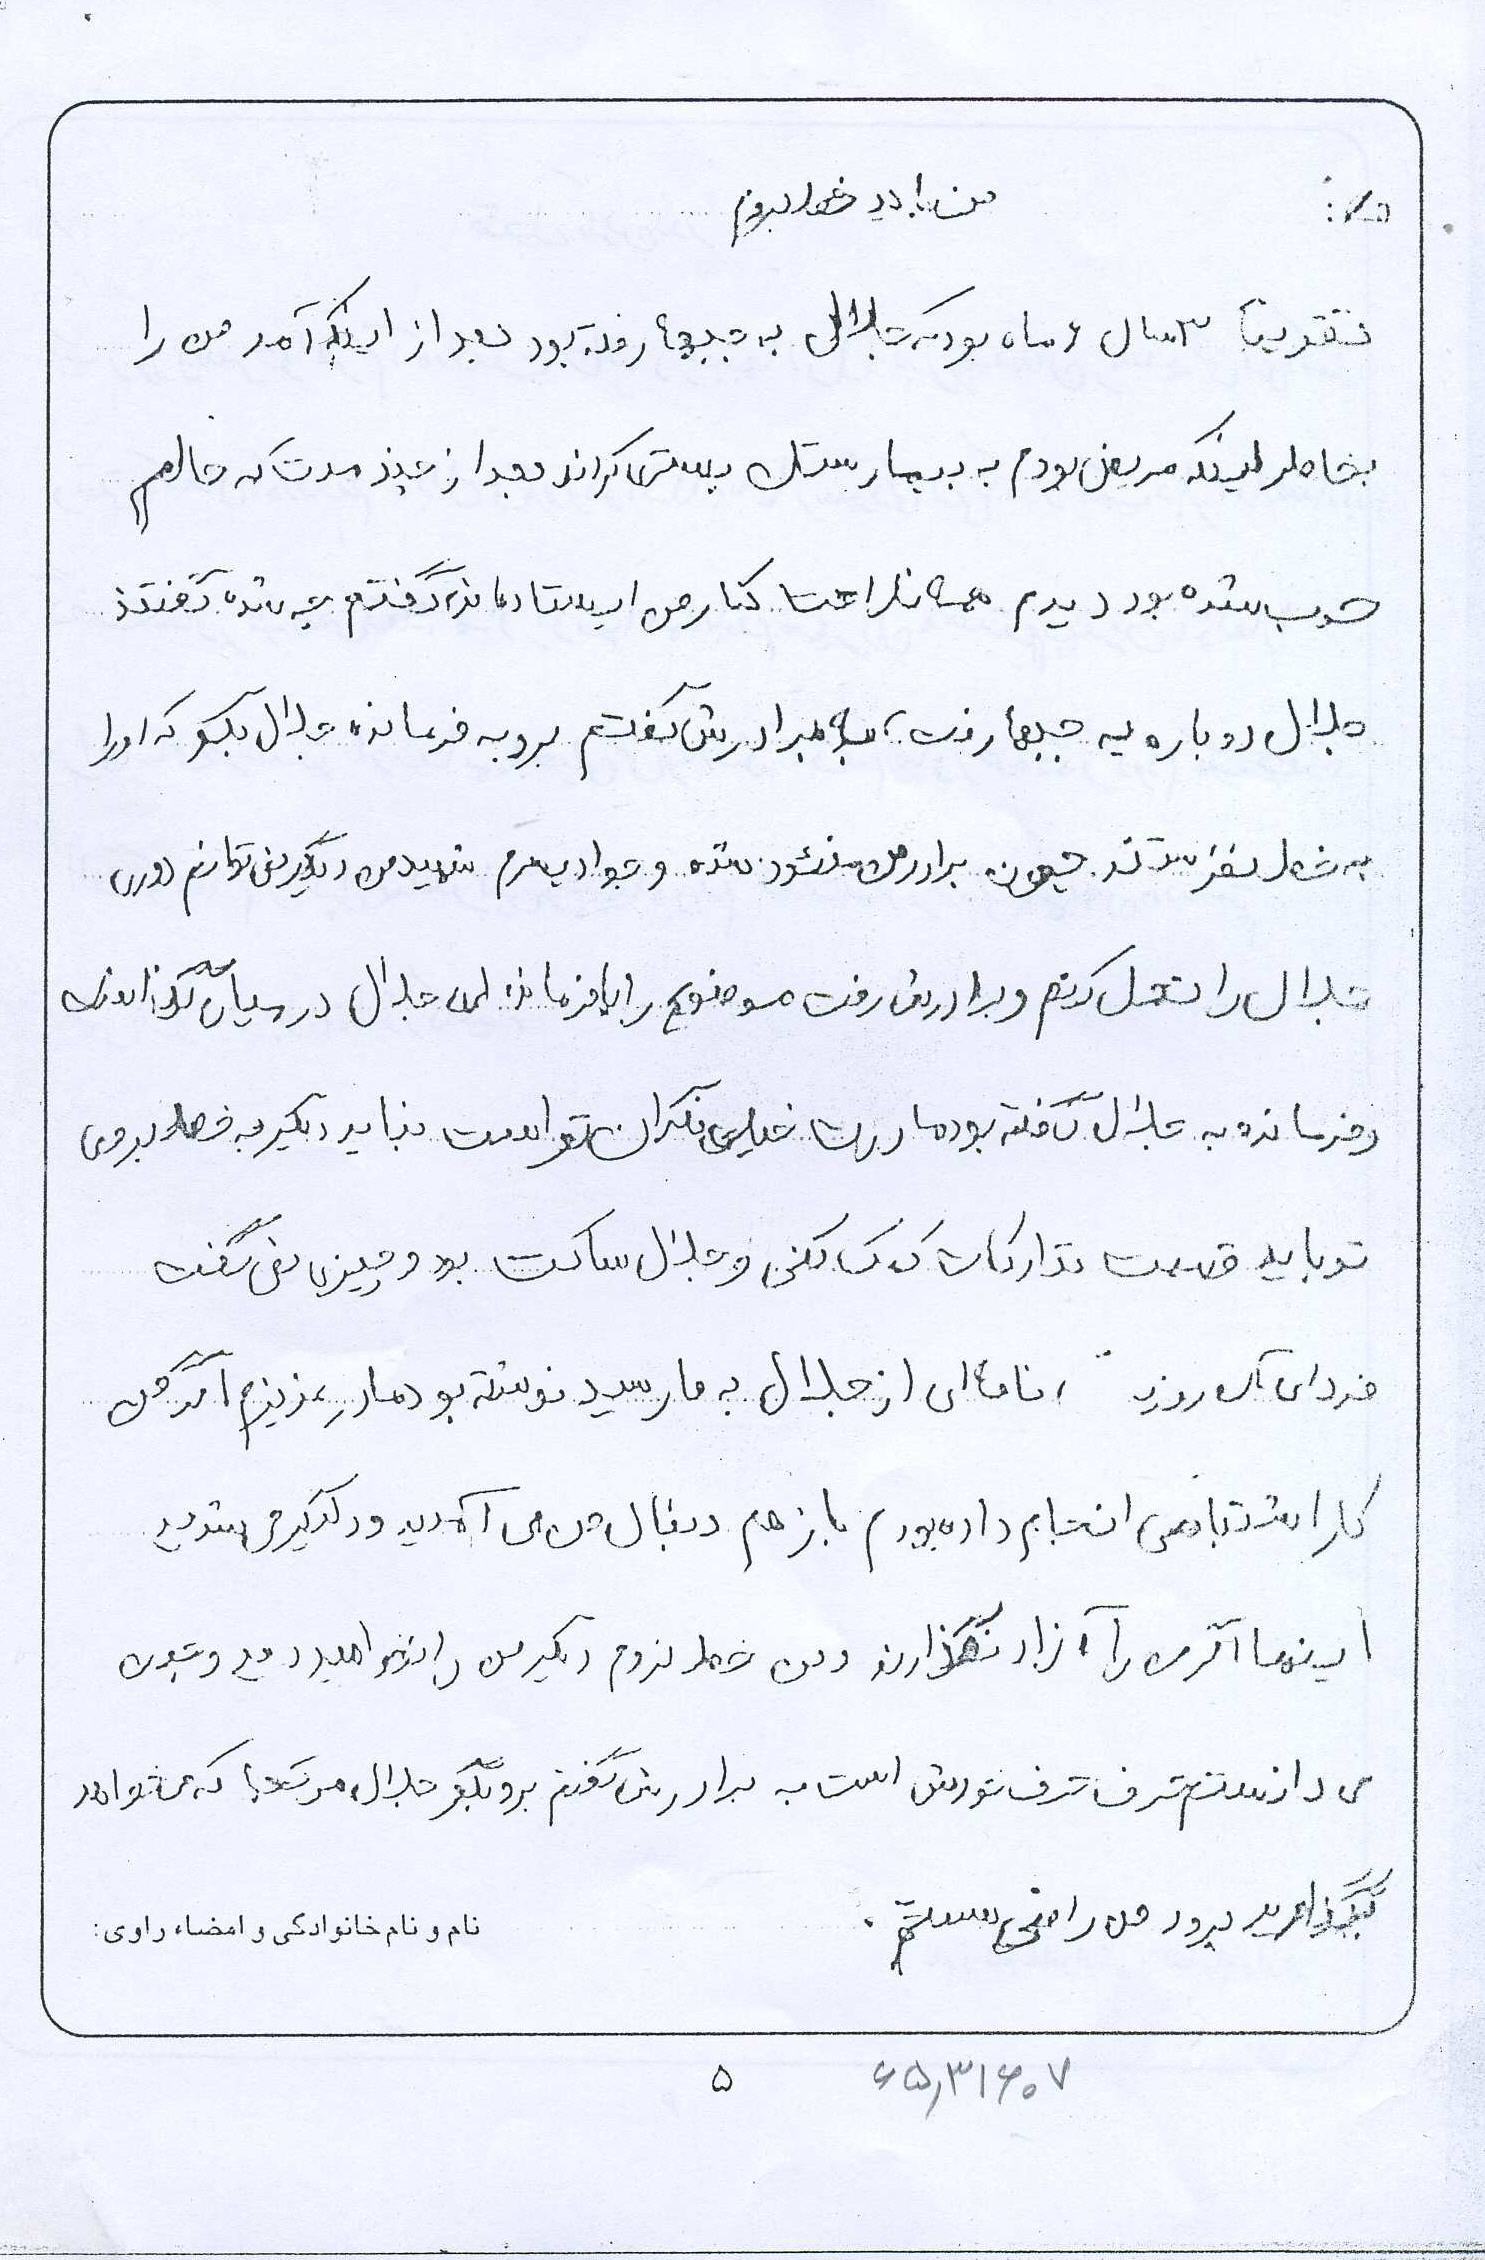 من باید خط بروم
تقریبا ۳سال ۶ماه بود که جلال به جبهه‌ها رفته بود بعد از اینکه آمد من را
بخاطر اینکه مریض بودم به بیمارستان بستری کراند بعد از چند مدت که حالم
خوب شده بود دیدم همه ناراحت کنار من ایستاده‌اند گفتم چه شده گفتند
جلال دوباره به جبهه‌ها رفت، به برادرش گفتم برو به فرمانده جلال بگو که او را
به خط نفرستند چون برادرمن مفقود شده و جواد پسرم شهید من دیگر نمی‌توانم دوری
جلال را تحمل کنم و برادرش رفت موضوع را با فرمانده‌ی جلال در میان گذاشت
و فرمانده به جلال گفته بود مادرت خیلی نگران تو است نباید دیگر به خط بروی
تو باید قسمت تدارکات کمک کنی و جلال ساکت بود و چیزی نمی گفت
فردای آن روز ، نامه‌ای از جلال به ما رسید نوشته بود مادر عزیزم اگر من
کار اشتباهی انجام داده بودم باز هم دنبال من می آمدید و دلگیر می شدید
اینها اگر من را آزاد نگذارند ومن خط نروم دیگر من را نخواهید دید و چون
می دانستم حرف حرف خودش است به برادرش گفتم برو بگو جلال هر کجا که می‌خواهد
بگذارید برود من راضی هستم .
نام و نام خانوادگی و امضاء راوی:
۵ ۶۵٫۳۱۶۰۷